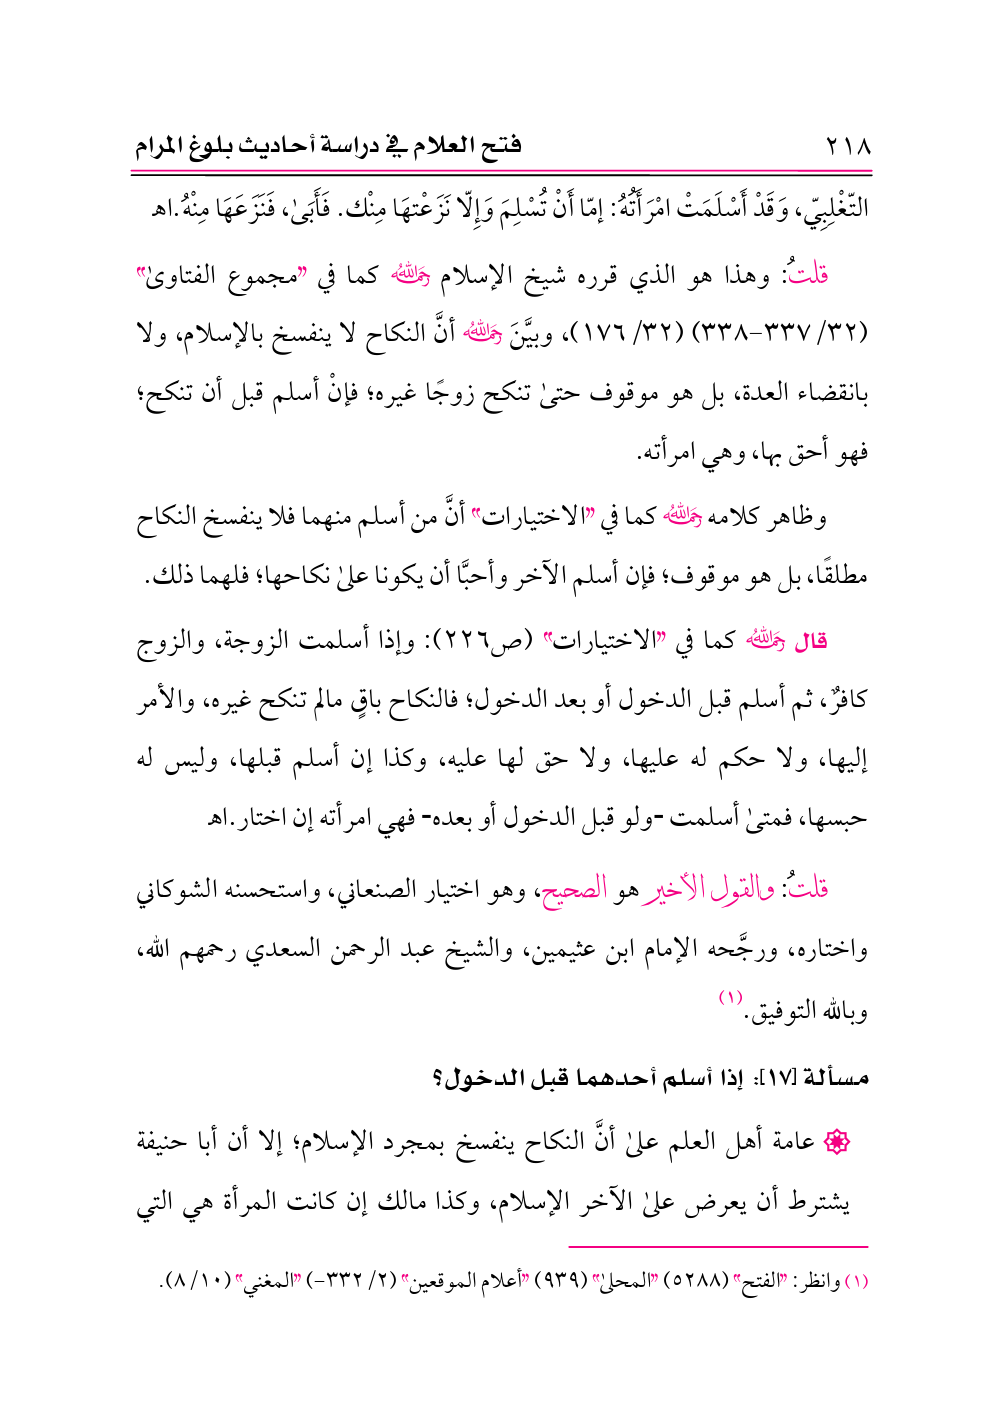 ٢١٨ فتح العلام في دراسة أحاديث بلوغ المرام
التَّغْلِبِيّ، وَقَدْ أَسْلَمَتْ امْرَأَتُهُ: إمّا أَنْ تُسْلِمَ وَإِلّا نَزَعْتهَا مِنْك. فَأَبَىٰ، فَنَزَعَهَا مِنْهُ.اﻫ
قلتُ: وهذا هو الذي قرره شيخ الإسلام رحمه الله كما في "مجموع الفتاوىٰ"
(٣٢/ ٣٣٧-٣٣٨) (٣٢/ ١٧٦)، وبيَّنَ رحمه الله أنَّ النكاح لا ينفسخ بالإسلام، ولا
بانقضاء العدة، بل هو موقوف حتىٰ تنكح زوجًا غيره؛ فإنْ أسلم قبل أن تنكح؛
فهو أحق بها، وهي امرأته.
وظاهر كلامه رحمه الله كما في "الاختيارات" أنَّ من أسلم منهما فلا ينفسخ النكاح
مطلقًا، بل هو موقوف؛ فإن أسلم الآخر وأحبَّا أن يكونا علىٰ نكاحها؛ فلهما ذلك.
قال رحمه الله كما في "الاختيارات" (ص٢٢٦): وإذا أسلمت الزوجة، والزوج
كافرٌ، ثم أسلم قبل الدخول أو بعد الدخول؛ فالنكاح باقٍ مالم تنكح غيره، والأمر
إليها، ولا حكم له عليها، ولا حق لها عليه، وكذا إن أسلم قبلها، وليس له
حبسها، فمتىٰ أسلمت -ولو قبل الدخول أو بعده- فهي امرأته إن اختار.اﻫ
قلتُ: والقول الأخير هو الصحيح، وهو اختيار الصنعاني، واستحسنه الشوكاني
واختاره، ورجَّحه الإمام ابن عثيمين، والشيخ عبد الرحمن السعدي رحمهم الله،
وبالله التوفيق.(١)
مسألة [١٧]: إذا أسلم أحدهما قبل الدخول؟
عامة أهل العلم علىٰ أنَّ النكاح ينفسخ بمجرد الإسلام؛ إلا أن أبا حنيفة
يشترط أن يعرض علىٰ الآخر الإسلام، وكذا مالك إن كانت المرأة هي التي
(١) وانظر: "الفتح" (٥٢٨٨) "المحلىٰ" (٩٣٩) "أعلام الموقعين" (٢/ ٣٣٢-) "المغني" (١٠/ ٨).